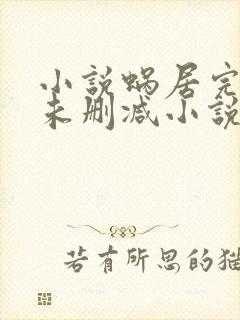 小説蝸居完
未刪減小説
若有所思的猫